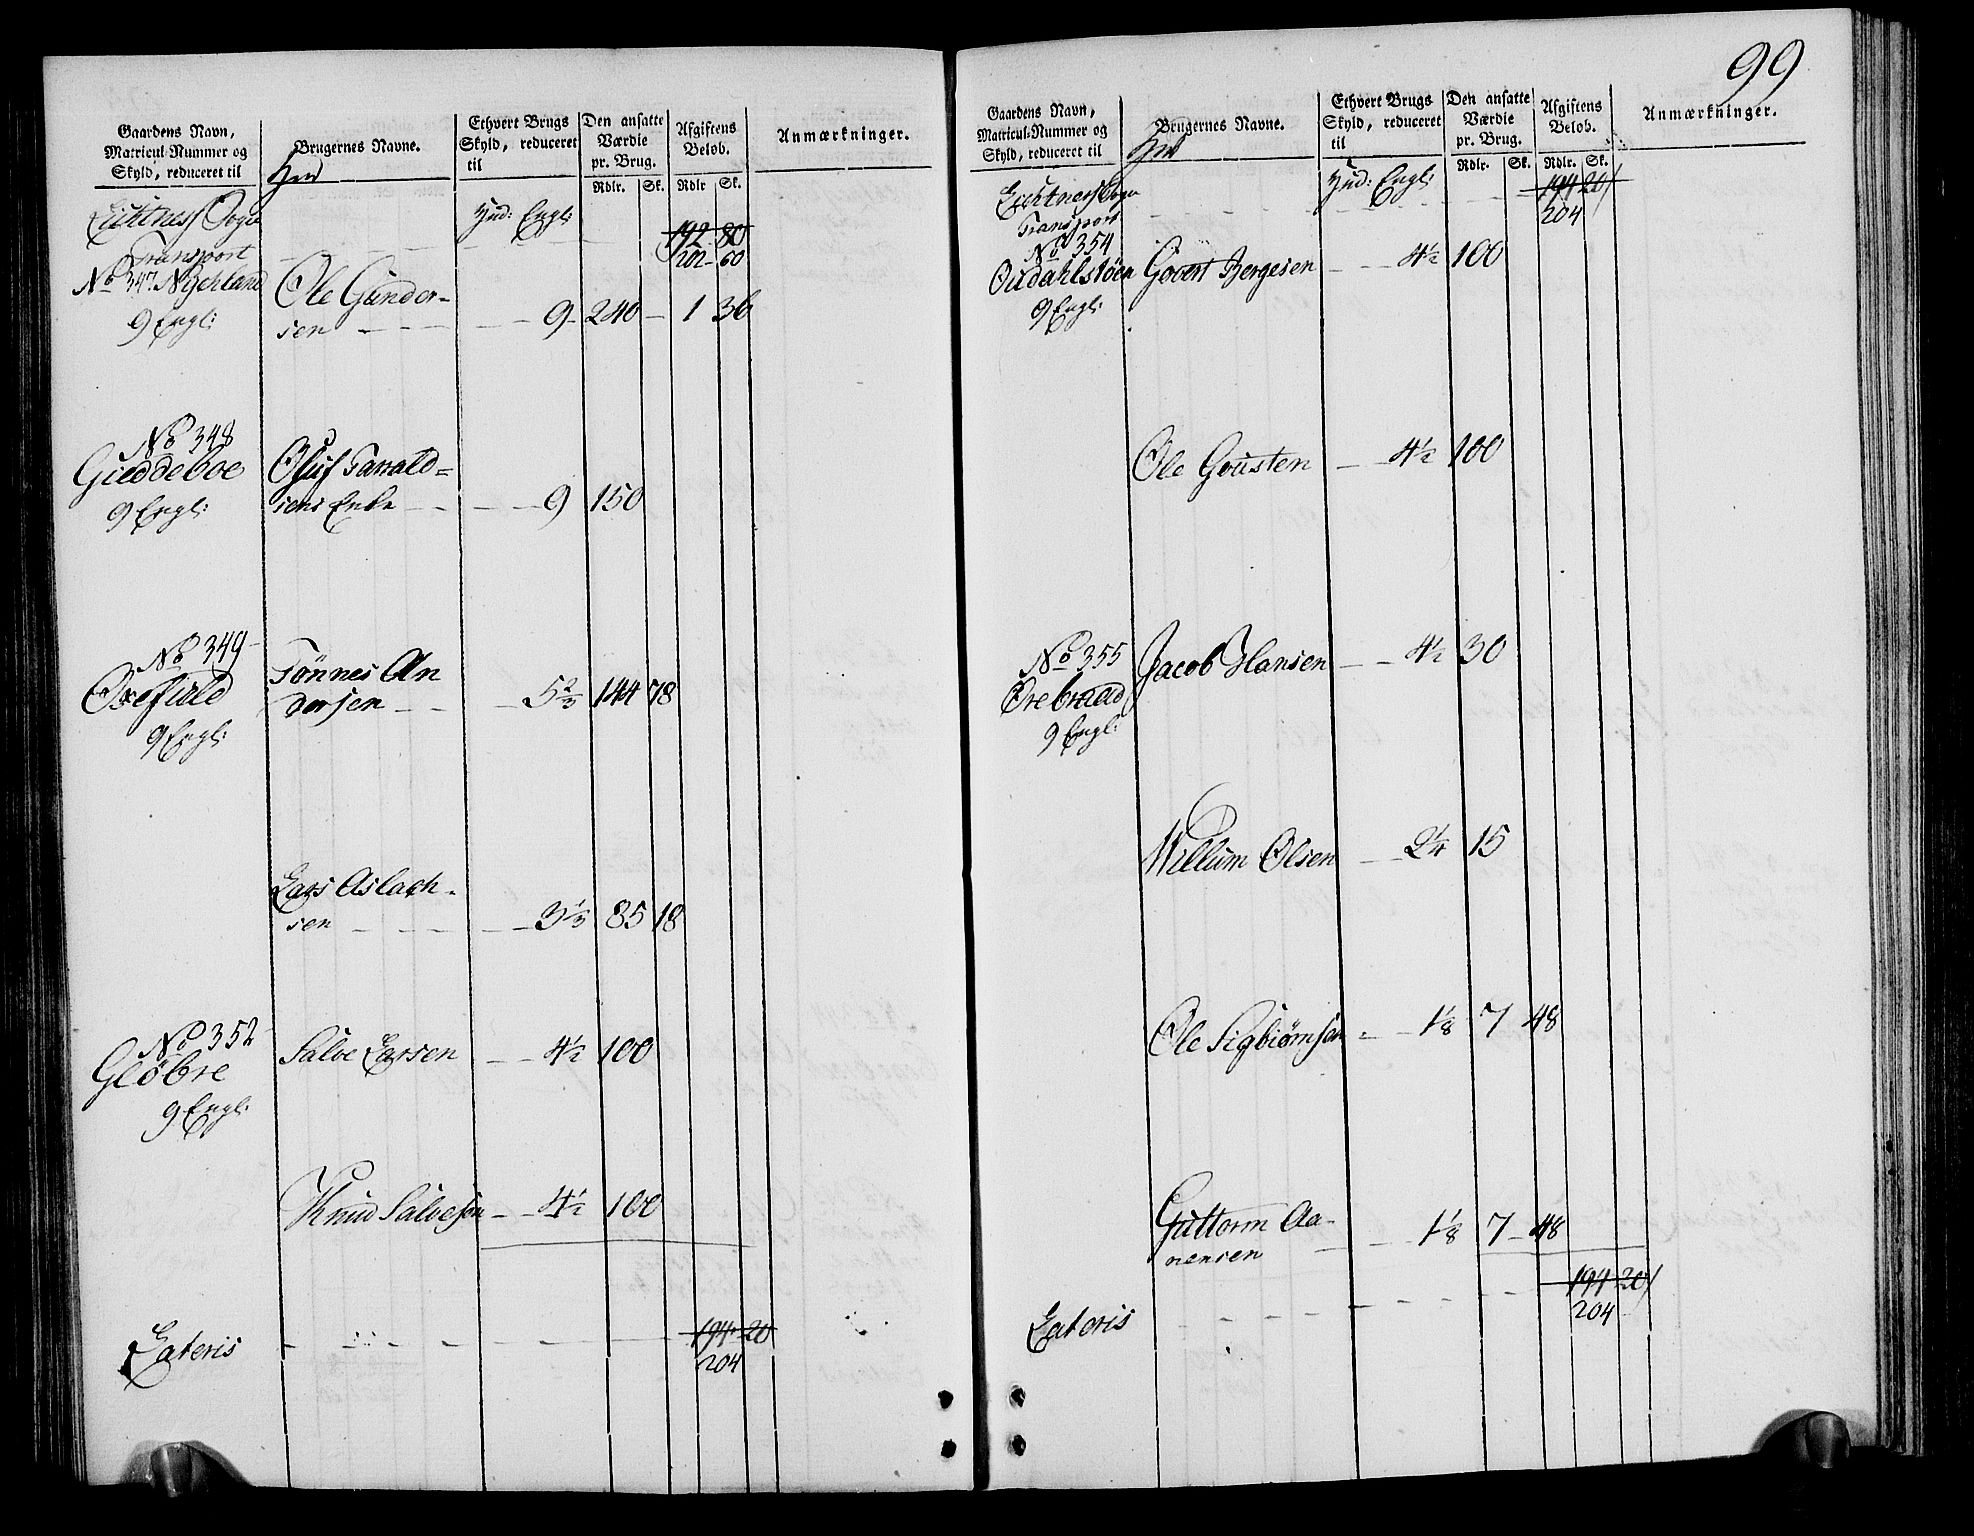 99
Gaardens Navn,
Matricul-Nummer og
Skyld, reduceret til
Brugernes Navne.
Ethvert Brugs
Skyld, reduceret
til
Den ansatte
Værdie
pr. Brug.
Rdlr. Sk.
Afgiftens
Beløb.
Rdlr Sk.
Anmærkninger.
Hud: Engl:
Sogn
Transport
192 80
202 60
No 347 Nyehland
9 Engl:
Ole Gunder-
sen 9 240 1 36
No 348
Gieddeboe
9 Engl:
Oluf Tarrald=
sens Enke 9 150
No 349
Oxefield
9 Engl:
Tönnes An
dersen 5 2/3 144 78
Lars Aslach-
sen 3 1/3 85 18
No 352
Gløbre
9 Engl:
Salve Larsen 4 1/2 100
Knud Salvesen 4 1/2 100
Lateris 194 20
204
Gaardens Navn,
Matricul-Nummer og
Skyld, reduceret til
Brugernes Navne.
Ethvert Brugs
Skyld, reduceret
til
Den ansatte
Værdie
pr. Brug.
Rdlr. Sk.
Afgiftens
Beløb.
Rdlr. Sk.
Anmærkninger.
Hud: Engl:
Sogn
Transport
194 20
204
No 354
Oudahlstøen
9 Engl:
Govert Bergesen 4 1/2 100
Ole Gousten 4 1/2 100
No 355
Ørebraad
9 Engl:
Jacob Hansen 4 1/2 30
Willum Olsen 2 1/4 15
Ole Sigbiörnsen 1 1/8 7 48
Guttorm Aa-
nensen 1 1/8 7 48
Lateris 194 20
204